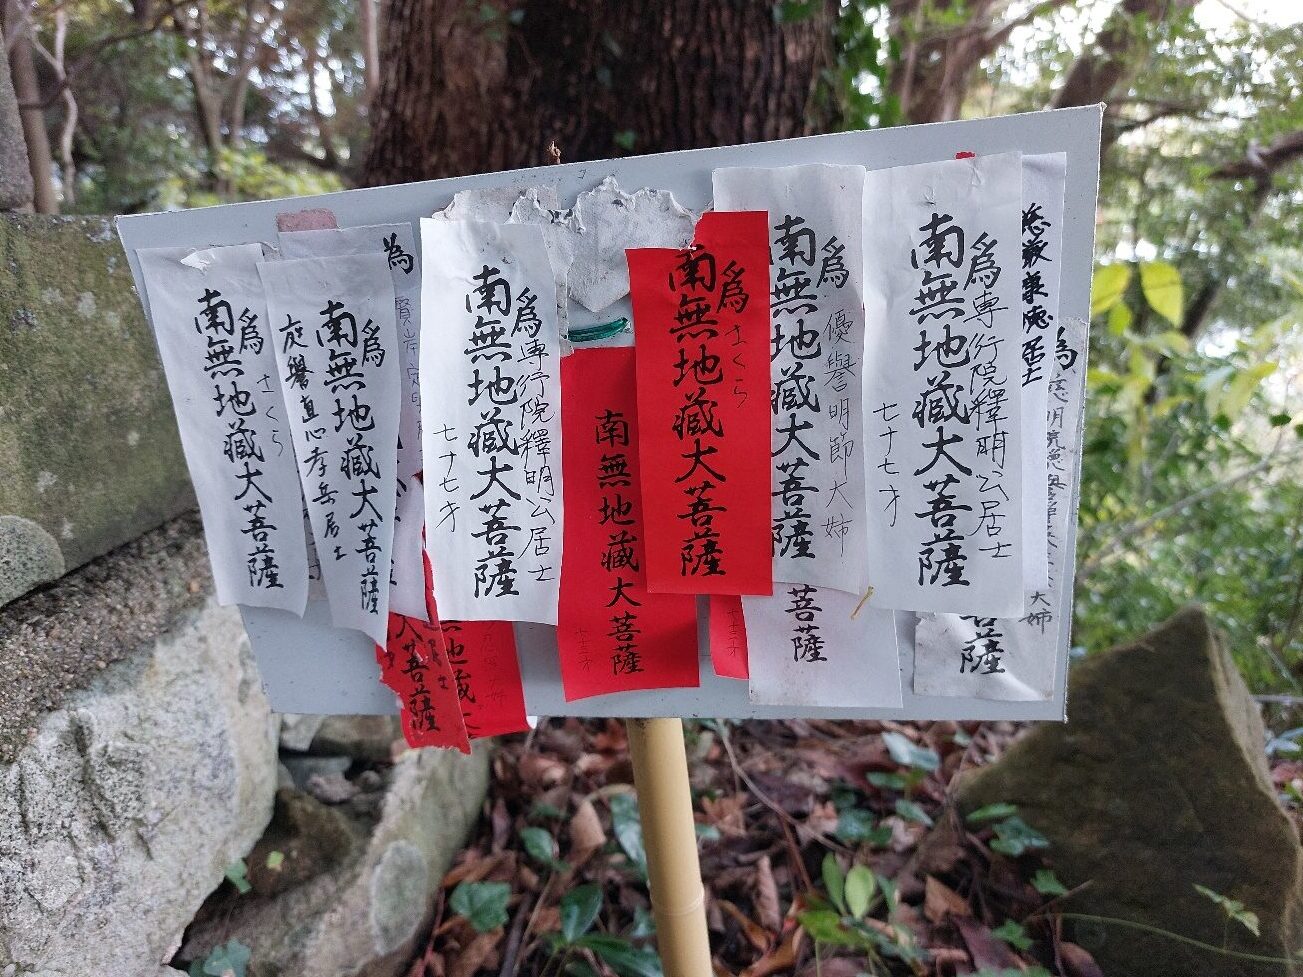 南無地藏大菩薩
爲 さくら
南無地藏大菩薩
爲
為
南無地藏大菩薩
爲專行院釋明公居士
七十七才
大菩薩
無地藏大
南無地藏大菩薩
七十三才
南無地藏大菩薩
爲 さくら
南無地藏大菩薩
爲 優譽明節大姉
菩薩
南無地藏大菩薩
爲專行院釋明公居士
七十七才
居士
為
大姉
菩薩